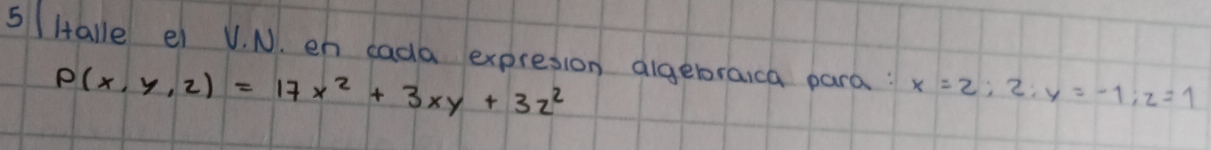 5| Halle el V.N. en cada expresion algebraica para : x = 2 ; 2 ; y = -1 ; z = 1
P(x, y, z) = 17x² + 3xy + 3z²